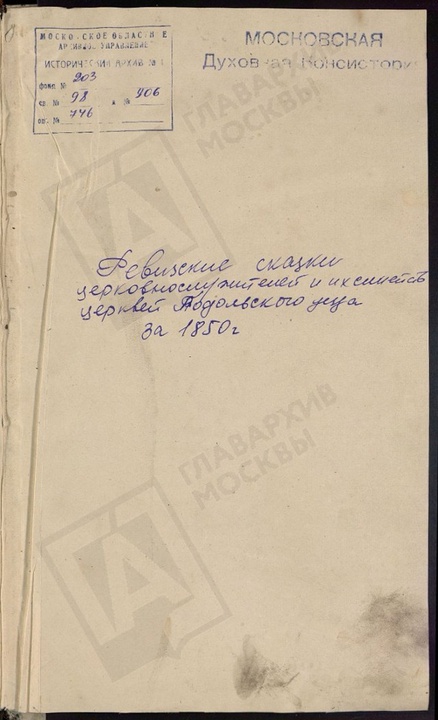 МОСКОВСКОЕ ОБЛАСТНОЕ
АРХИВНОЕ УПРАВЛЕНИЕ
ИСТОРИЧЕСКИЙ АРХИВ
фонд № 203
св. № 98 д. № 906
оп. № 746
МОСКОВСКАЯ
Духовная Консистория
Ревизские сказки
церковнослужителей и их семейств
церквей Подольского уезда
за 1850 г
ГЛАВАРХИВ
МОСКВЫ
ГЛАВАРХИВ
МОСКВЫ